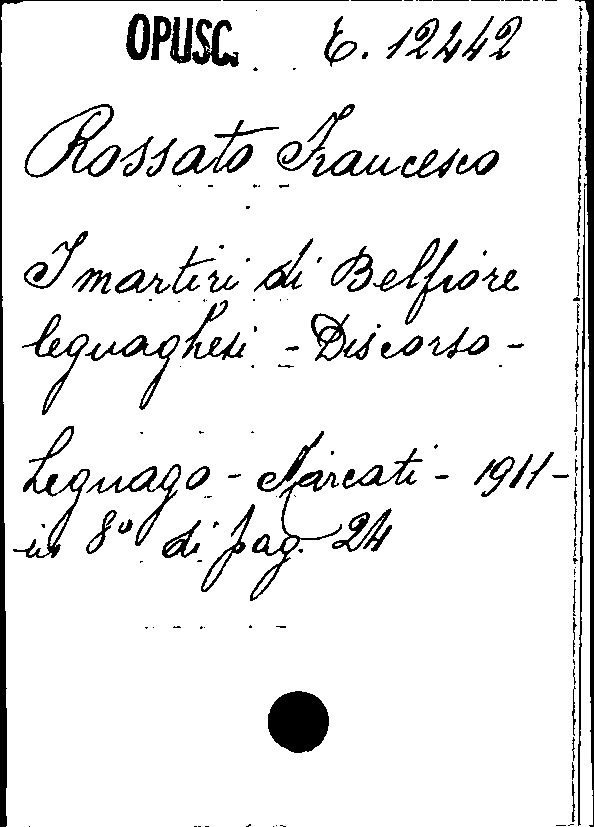 OPUSC. E. 12442
Rossato Francesco
I martiri di Belfiore
leguaghesi - Discorso -
Legnago - Marcati - 1911 -
in 8° di pag. 24